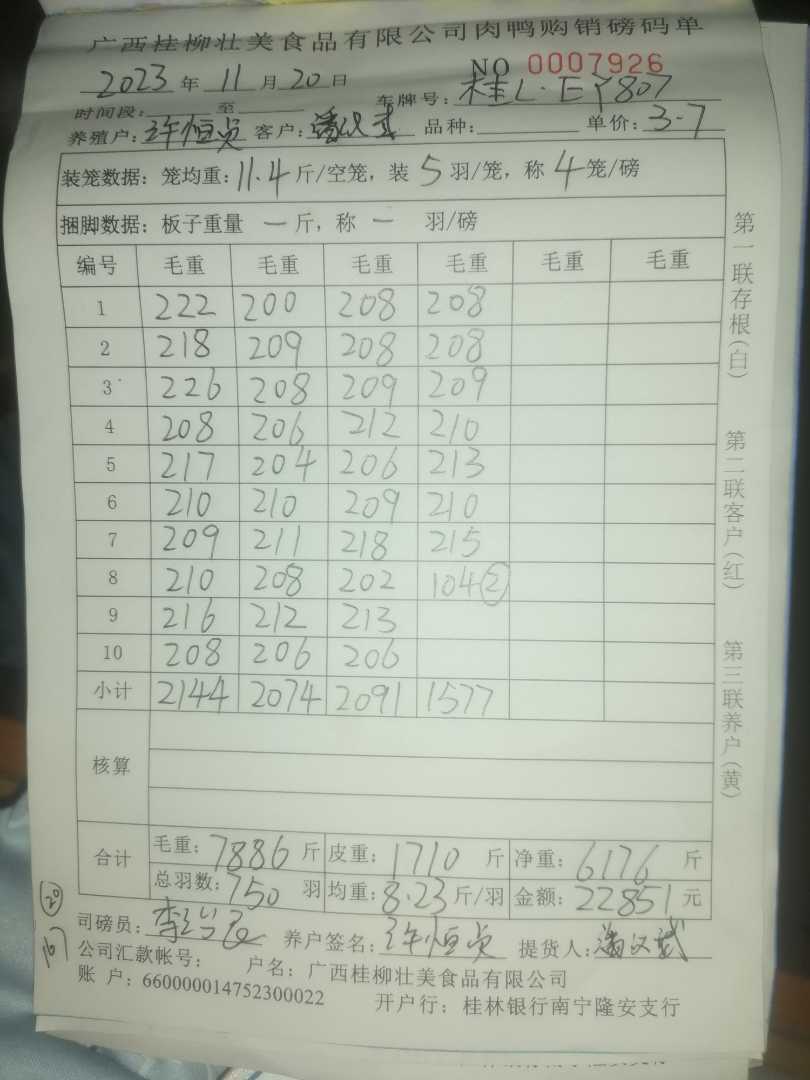 广西桂柳壮美食品有限公司肉鸭购销磅码单
NO 0007926
2023 年 11 月 20 日
时间段: 至 车牌号: 桂L·EY807
养殖户: 许恒贞 客户: 潘汉武 品种: 单价: 3-7
装笼数据: 笼均重: 11.4 斤/空笼, 装 5 羽/笼, 称 4 笼/磅
捆脚数据: 板子重量 一 斤, 称 一 羽/磅
编号 毛重 毛重 毛重 毛重 毛重 毛重
1 222 200 208 208
2 218 209 208 208
3 226 208 209 209
4 208 206 212 210
5 217 204 206 213
6 210 210 209 210
7 209 211 218 215
8 210 208 202 104 ②
9 216 212 213
10 208 206 206
小计 2144 2074 2091 1577
核算
合计 毛重: 7886 斤 皮重: 1710 斤 净重: 6176 斤
总羽数: 750 羽 均重: 8.23 斤/羽 金额: 22851 元
司磅员: 养户签名: 许恒贞 提货人: 潘汉武
公司汇款帐号: 户名: 广西桂柳壮美食品有限公司
账 户: 660000014752300022 开户行: 桂林银行南宁隆安支行
第一联存根(白) 第二联客户(红) 第三联养户(黄)
20
167